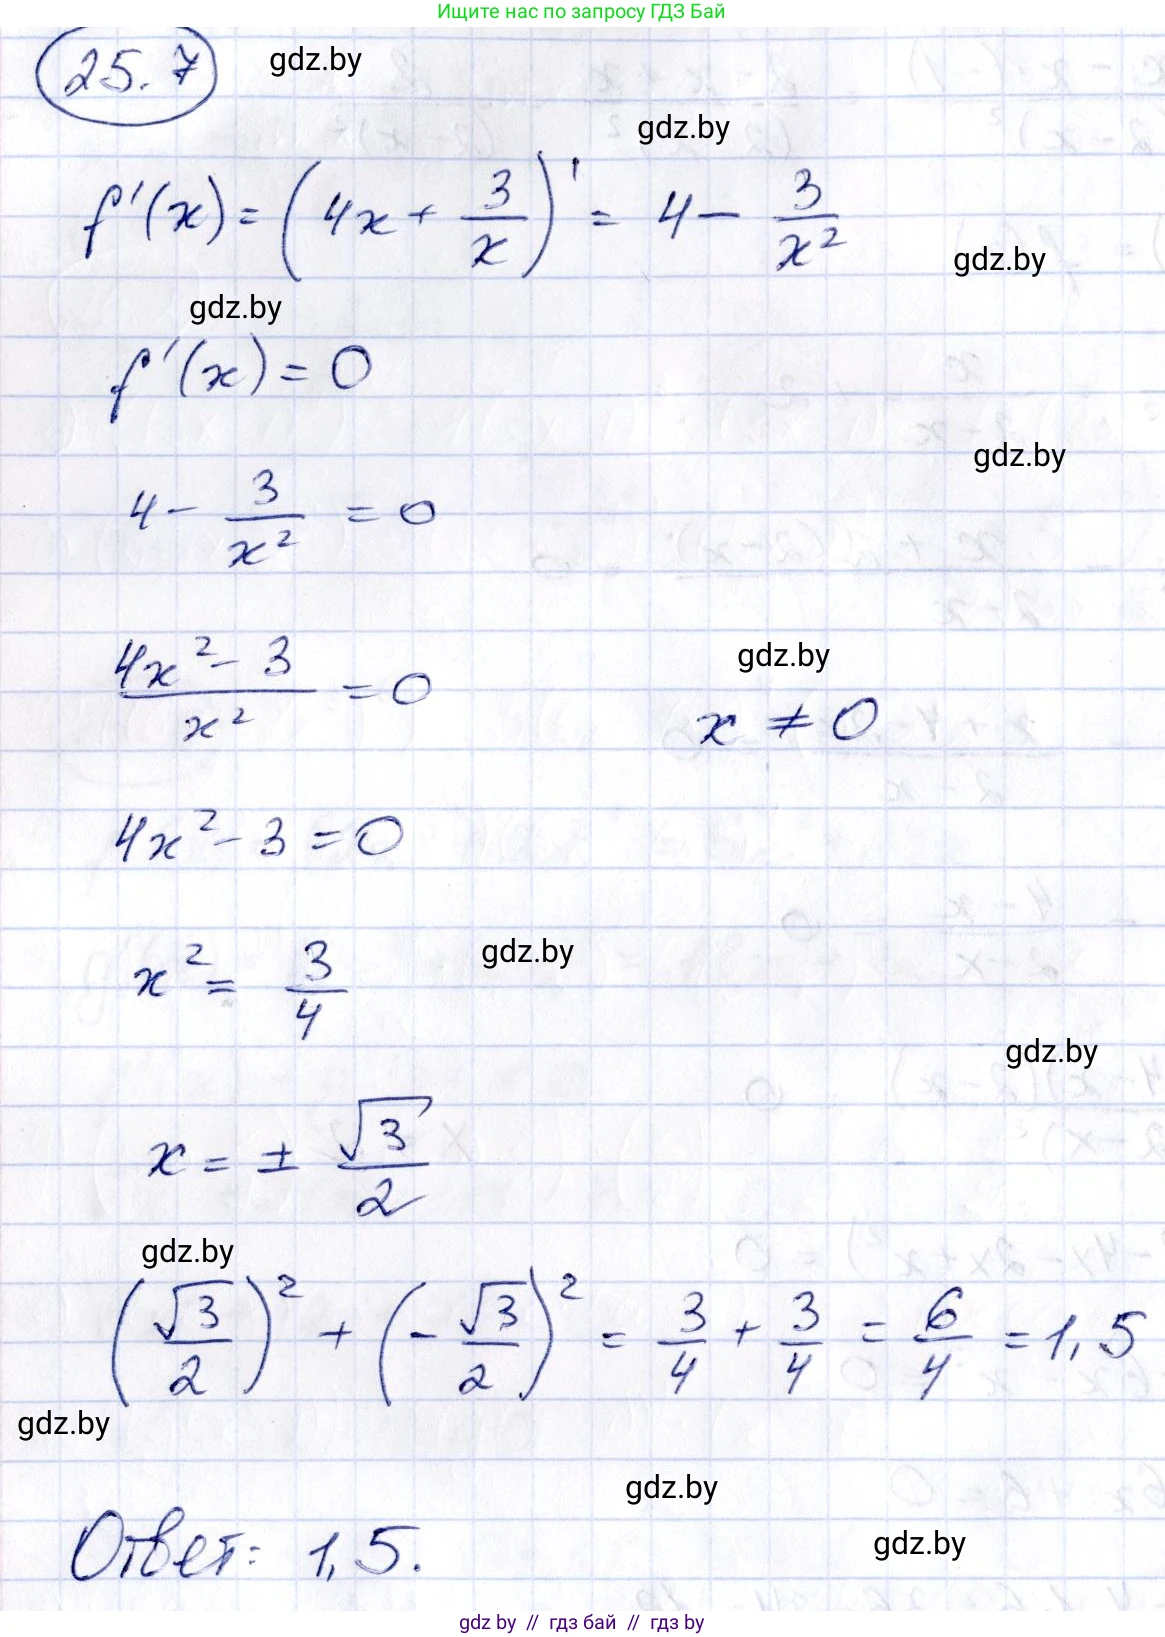 Ищите нас по запросу ГДЗ Бай
25.7 gdz.by
gdz.by
f'(x) = (4x + 3/x)' = 4 - 3/x²
gdz.by
gdz.by
f'(x) = 0
gdz.by
4 - 3/x² = 0
gdz.by
(4x² - 3)/x² = 0 x ≠ 0
4x² - 3 = 0
gdz.by
x² = 3/4
gdz.by
x = ± √3/2
gdz.by
(√3/2)² + (-√3/2)² = 3/4 + 3/4 = 6/4 = 1,5
gdz.by
gdz.by
Ответ: 1,5.
gdz.by
gdz.by // гдз бай // gdz by